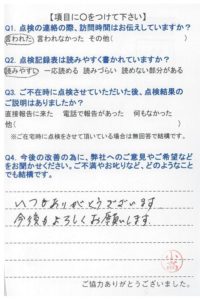 【項目に○をつけて下さい】
Q1. 点検の連絡の際、訪問時間はお伝えしていますか?
言われた 言われなかった その他( )
Q2. 点検記録表は読みやすく書かれていますか?
読みやすい 一応読める 読みづらい 読めない部分がある
Q3. ご不在時に点検させていただいた後、点検結果の
ご説明はありましたか?
直接報告に来た 電話で報告があった 何もなかった
他( )
※ご在宅時に点検をさせて頂いている場合は無回答で結構です。
Q4. 今後の改善の為に、弊社へのご意見やご希望など
をお聞かせください。ご不満やお叱りなど、どのようなこと
でも結構です。
いつもありがとうございます
今後もよろしくお願いします
ご協力ありがとうございました。